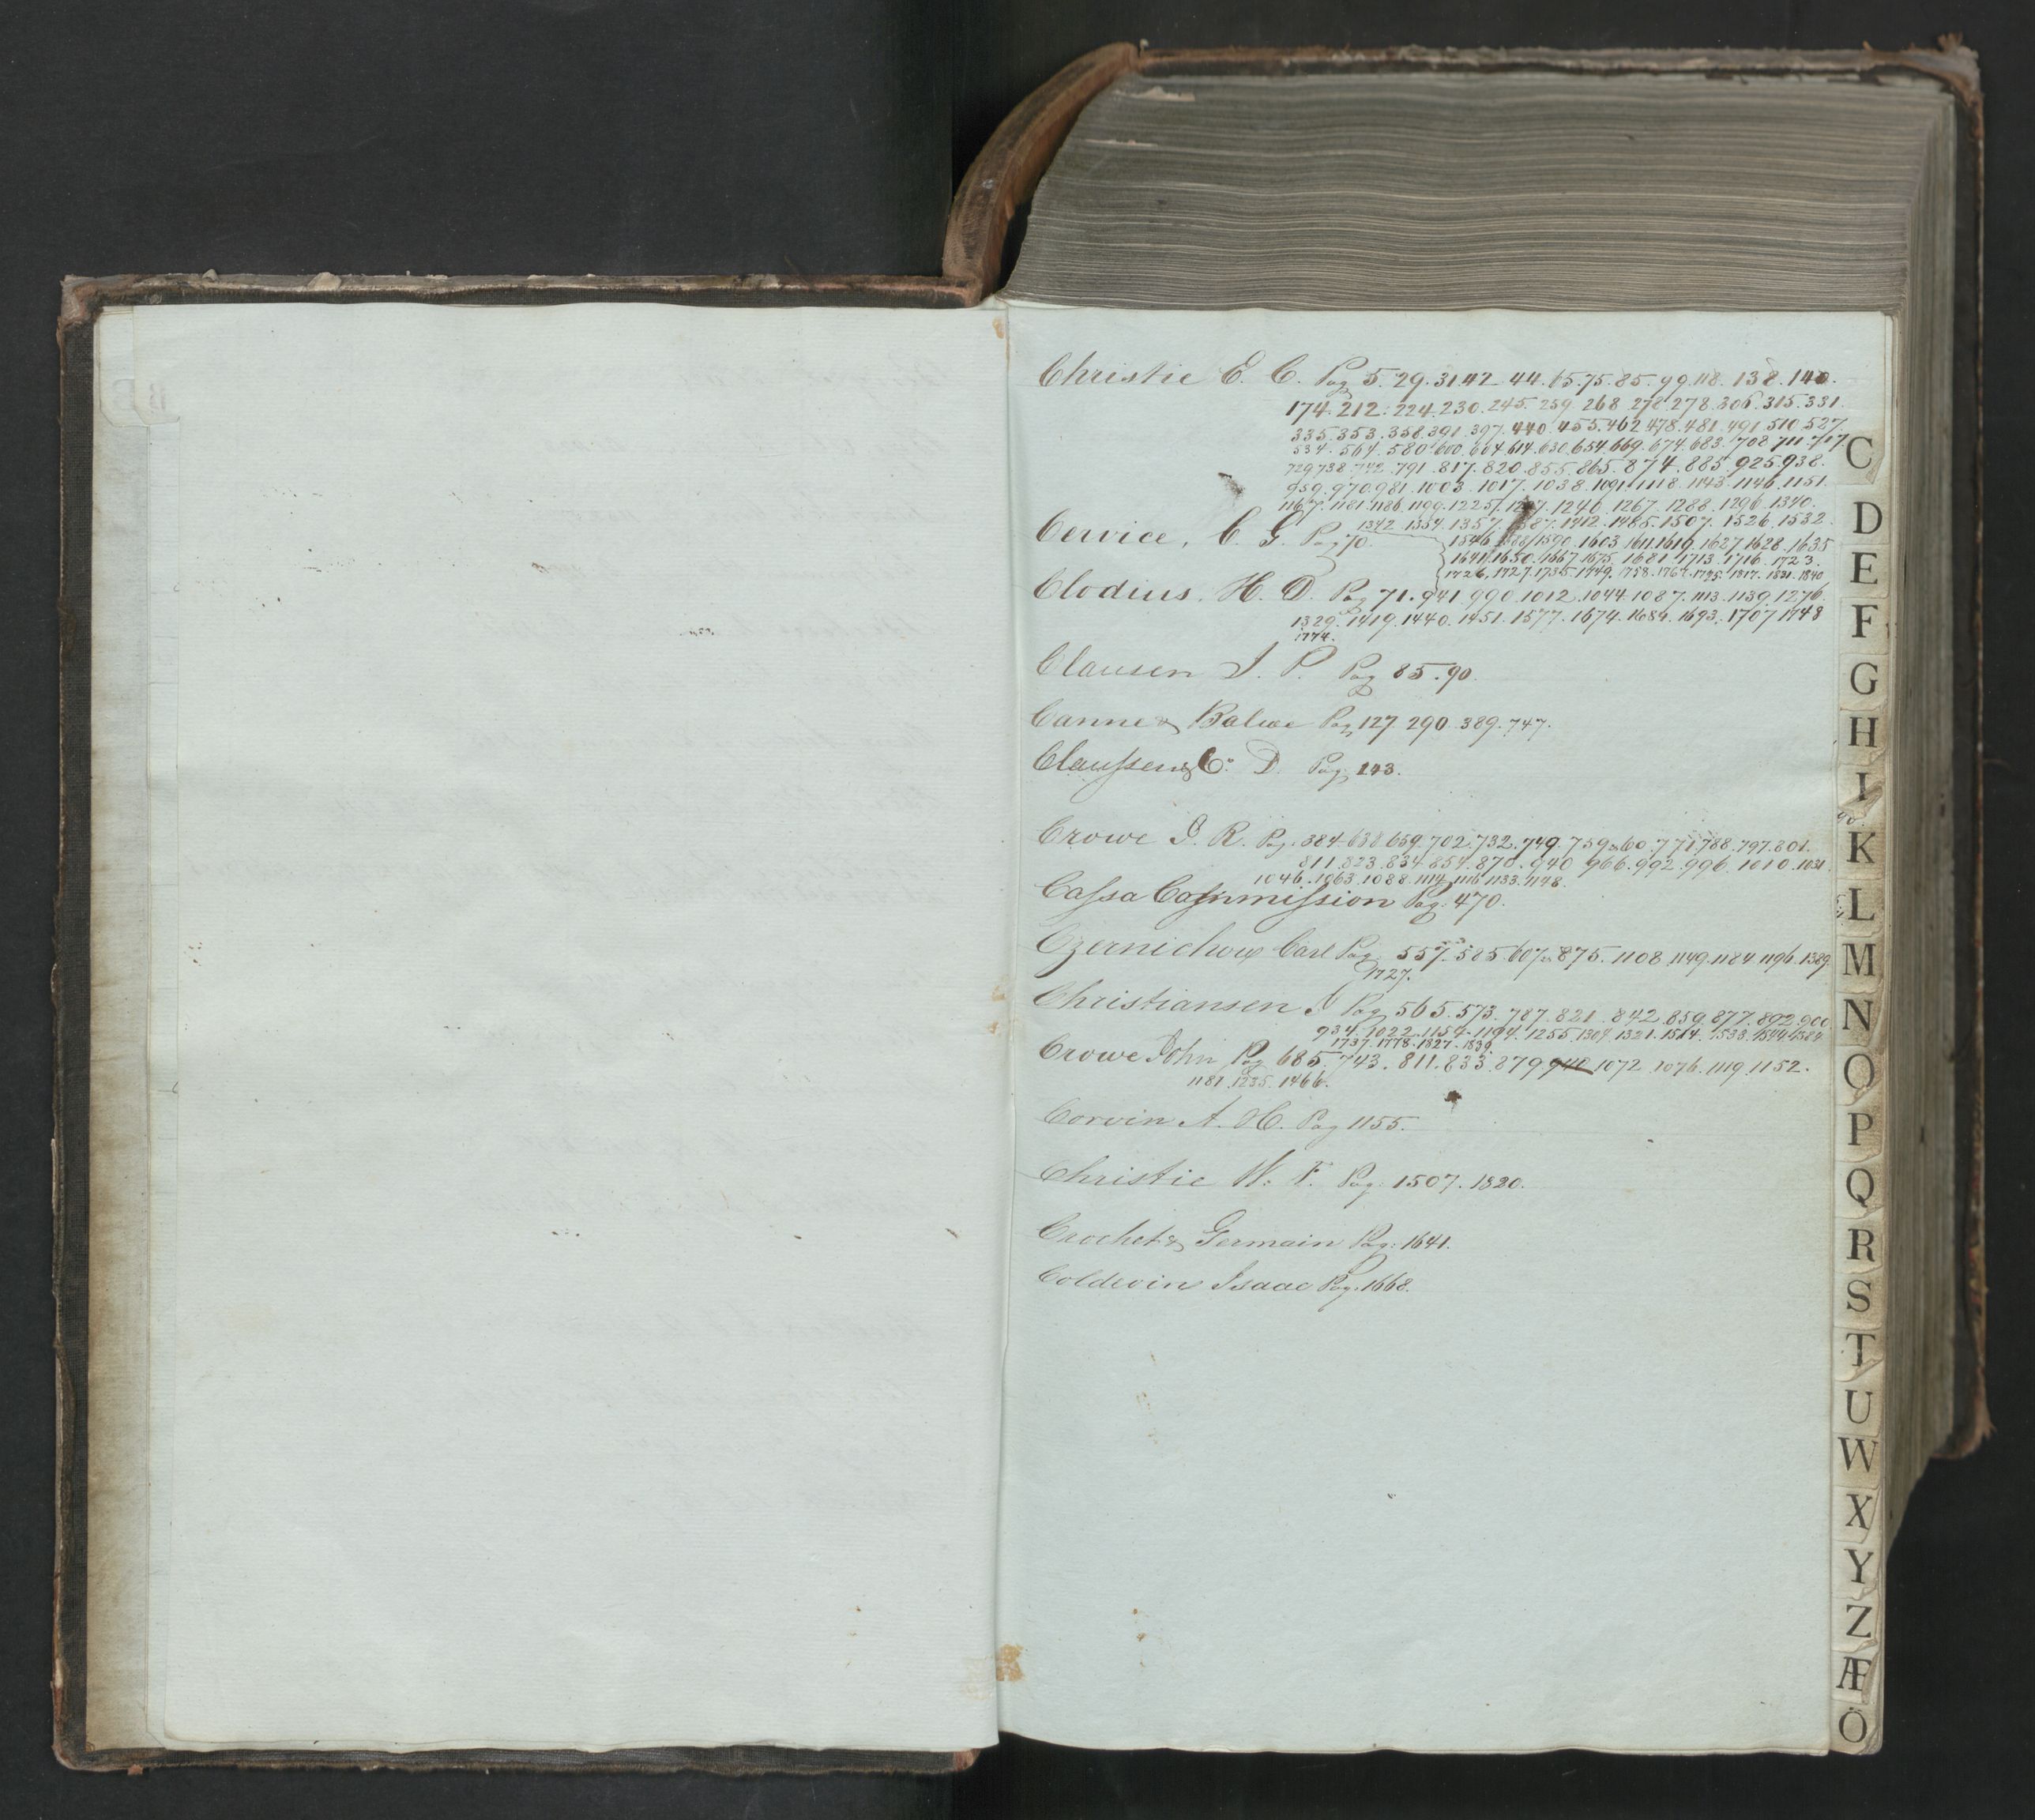 Christie E. C. Pag 5. 29. 31. 42. 44. 65. 75. 85. 99. 118. 138. 140.
174. 212. 224. 230. 245. 259. 268. 278. 278. 306. 315. 331.
335. 353. 358. 391. 397. 440. 455. 462. 478. 481. 491. 510. 527.
534. 564. 580. 600. 604. 614. 630. 654. 669. 674. 683. 708. 711. 717.
729. 738. 742. 791. 817. 820. 855. 865. 874. 885. 925. 938.
959. 970. 981. 1003. 1017. 1038. 1091. 1118. 1143. 1146. 1151.
1167. 1181. 1186. 1199. 1225. 1240. 1267. 1288. 1296. 1340.
1342. 1354. 1357. 1387. 1412. 1485. 1507. 1526. 1532.
Cervice, C. G. Pag 70.
1546. 1590. 1603. 1611. 1619. 1627. 1628. 1635
1641. 1650. 1667. 1675. 1681. 1713. 1716. 1723.
1726. 1727. 1735. 1749. 1758. 1767. 1795. 1817. 1831. 1840
Clodius. H. D. Pag 71. 941. 990. 1012. 1044. 1087. 1113. 1139. 1276.
1329. 1419. 1440. 1451. 1577. 1674. 1684. 1693. 1707. 1748
1774.
Clausen J. P. Pag 85. 90.
Canne & Balwe Pag 127. 290. 389. 747.
Claussen & Co. D. Pag. 143.
Crowe J. R. Pag. 384. 638. 659. 702. 732. 749. 759 & 60. 771. 788. 797. 801.
811. 823. 834. 854. 870. 940. 966. 992. 996. 1010. 1031.
1046. 1063. 1088. 1114. 1116. 1133. 1148.
Cassa Commission Pag. 470.
Czernichow Carl Pag. 557. 585. 607. 875. 1108. 1149. 1184. 1196. 1389.
1727.
Christiansen J Pag 565. 573. 787. 821. 842. 859. 877. 892. 900.
934. 1022. 1154. 1194. 1255. 1304. 1321. 1514. 1533. 1544. 1584
1737. 1778. 1827. 1839.
Crowe John Pag 685. 743. 811. 833. 879. 940. 1072. 1076. 1119. 1152.
1181. 1235. 1466.
Corvin A. H. Pag 1155.
Christie W. F. Pag. 1507. 1820.
Crochet & Germain Pag. 1641.
Coldevin Isaac Pag. 1668.
C
D
E
F
G
H
I
K
L
M
N
O
P
Q
R
S
T
U
W
X
Y
Z
Æ
Ö